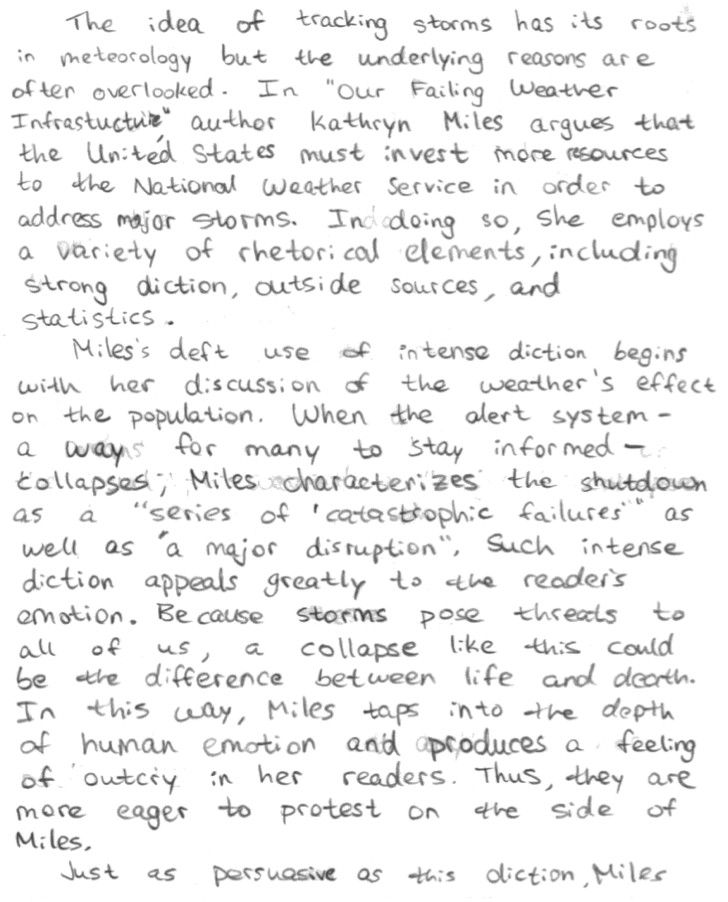 The idea of tracking storms has its roots
in meteorology but the underlying reasons are
often overlooked. In "Our Failing Weather
Infrastuctur," author Kathryn Miles argues that
the United States must invest more resources
to the National Weather Service in order to
address major storms. In doing so, she employs
a variety of rhetorical elements, including
strong diction, outside sources, and
statistics.
Miles's deft use of intense diction begins
with her discussion of the weather's effect
on the population. When the alert system –
a way for many to stay informed –
collapses, Miles characterizes the shutdown
as a "series of 'catastrophic failures'" as
well as "a major disruption". Such intense
diction appeals greatly to the reader's
emotion. Because storms pose threats to
all of us, a collapse like this could
be the difference between life and death.
In this way, Miles taps into the depth
of human emotion and produces a feeling
of outcry in her readers. Thus, they are
more eager to protest on the side of
Miles.
Just as persuasive as this diction, Miles